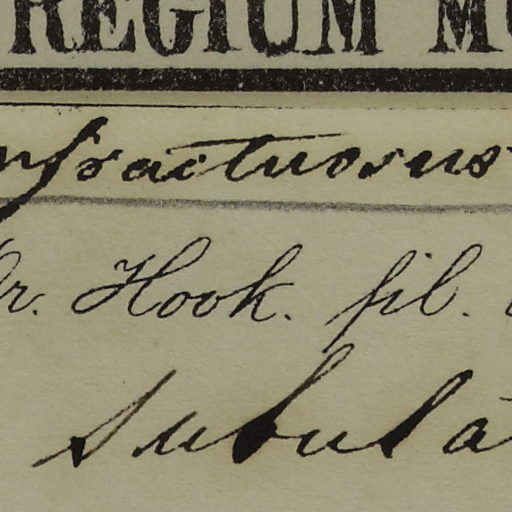 REGIUM M
nfractuosus
Dr. Hook. fil.
subula